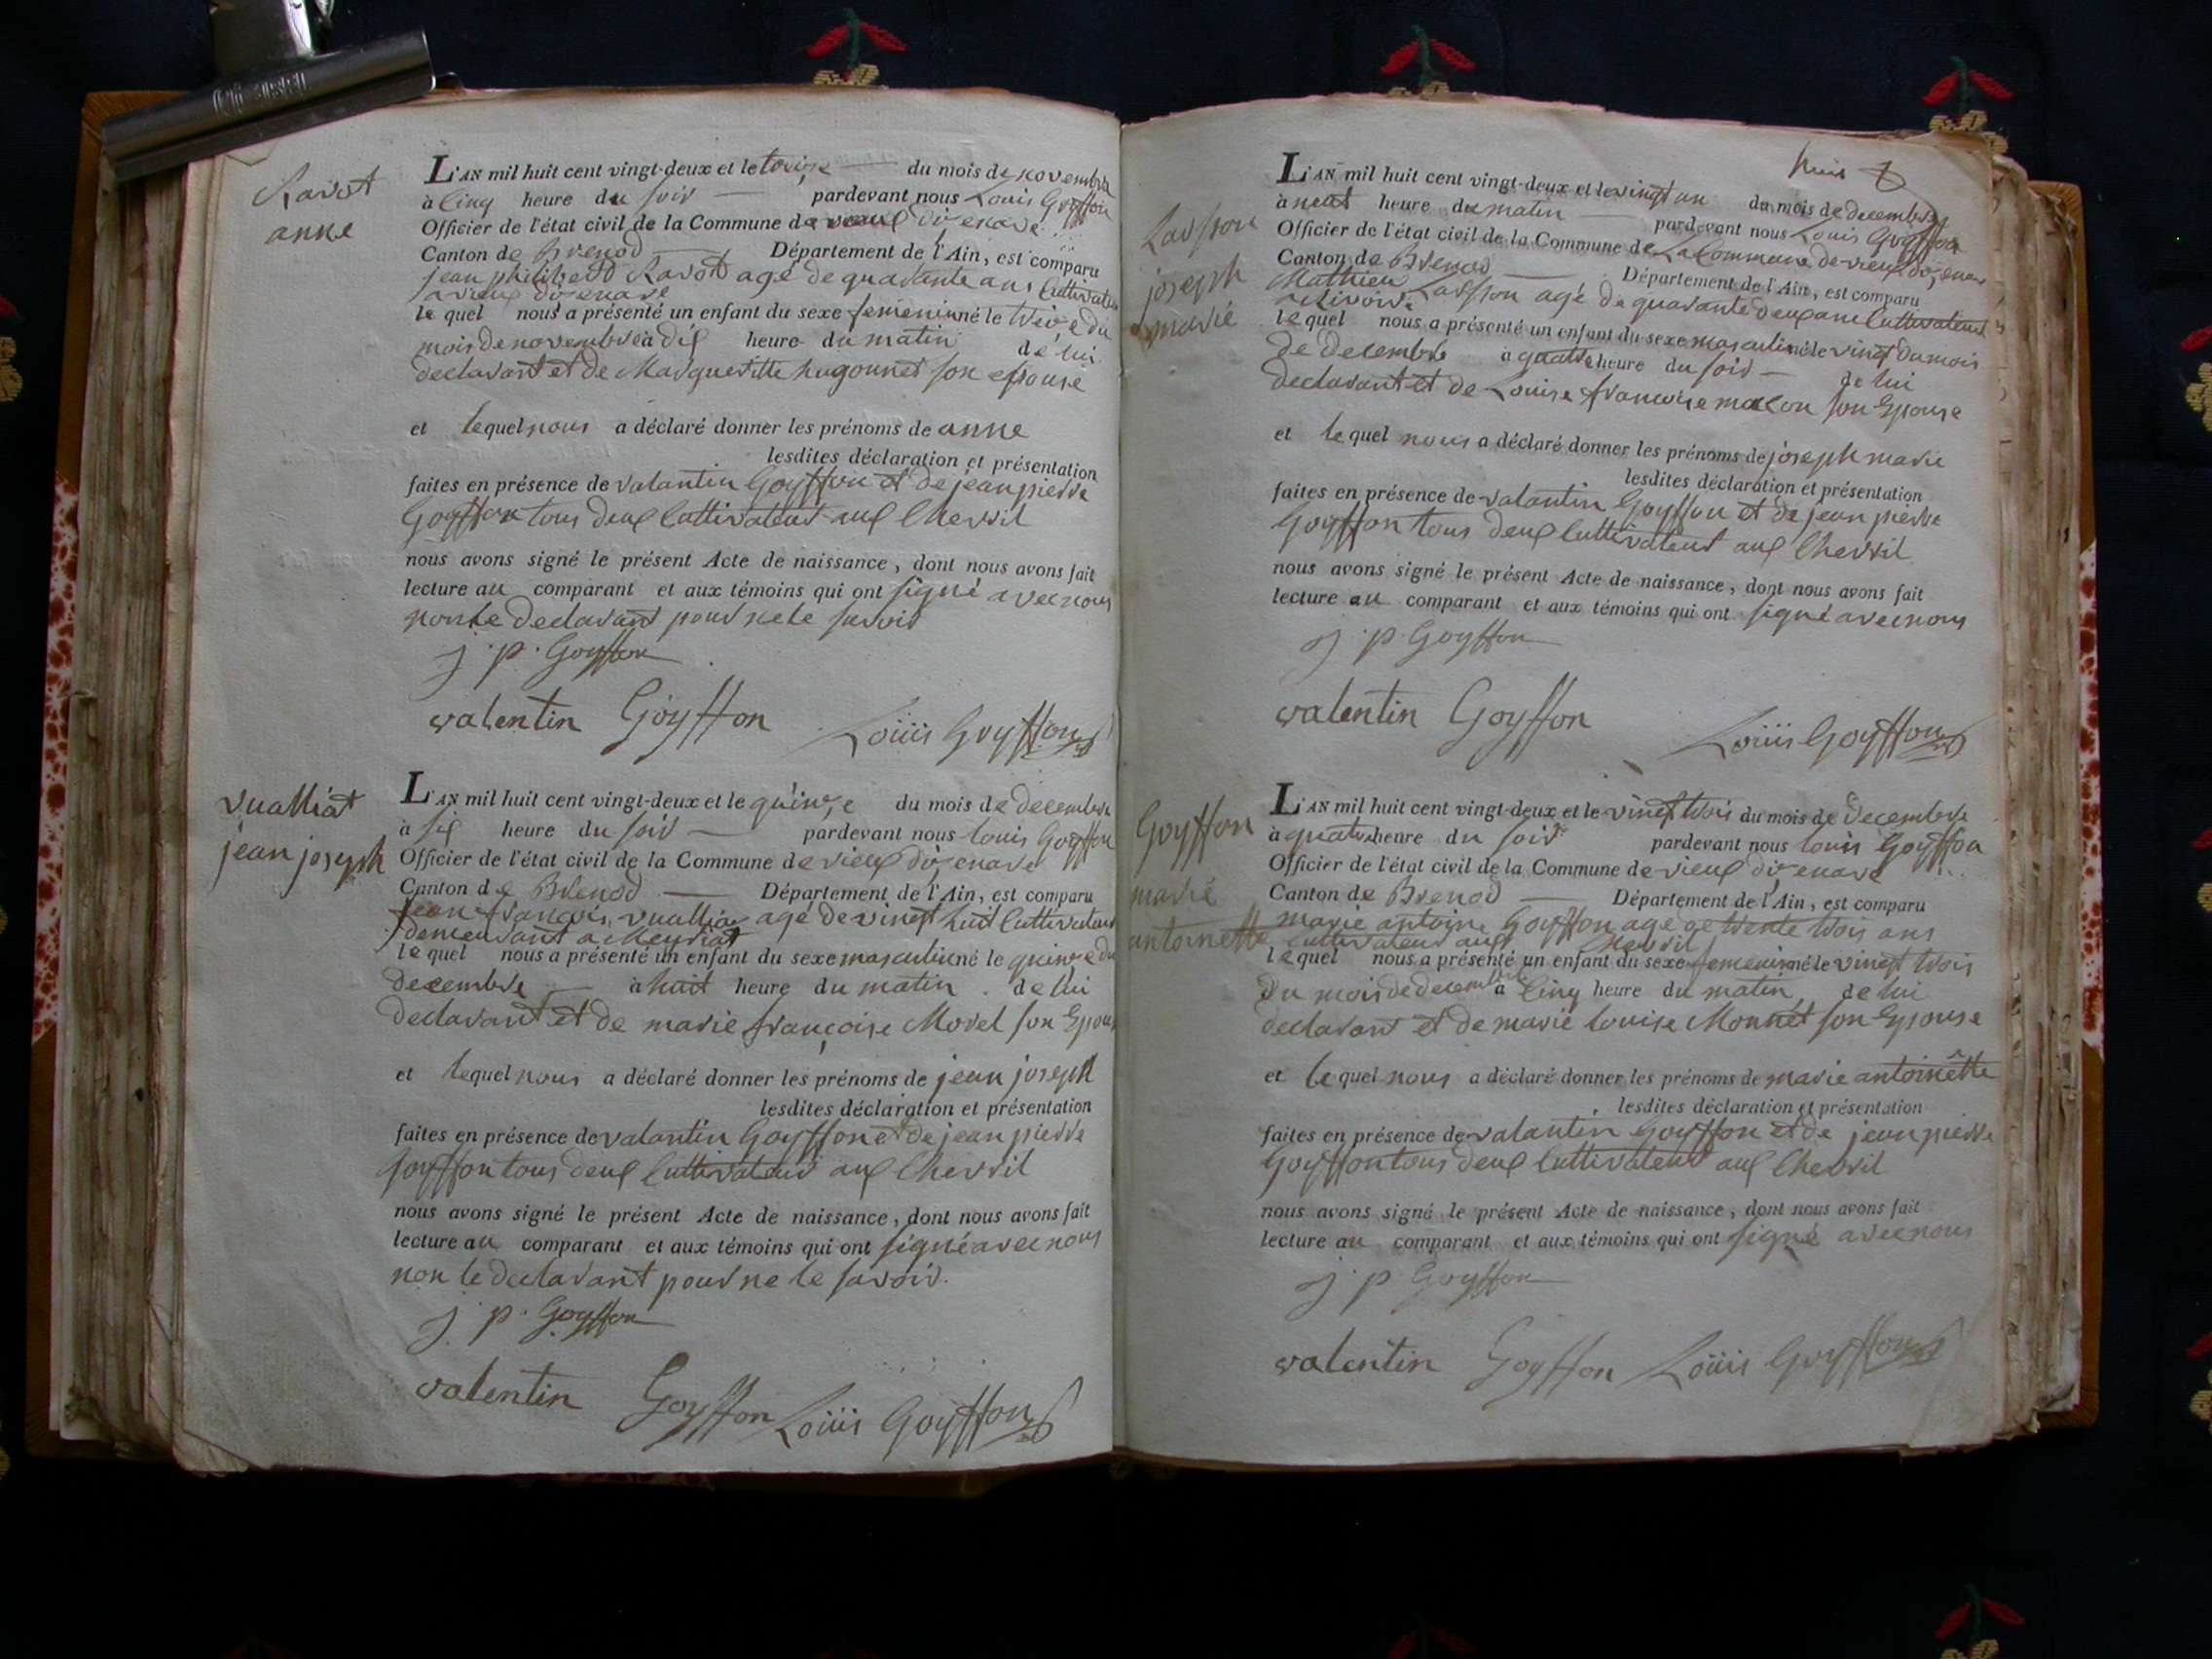 Ravot
anne
L'AN mil huit cent vingt-deux et le treize du mois de novembre
à cinq heure du soir pardevant nous Louis Goyffon
Officier de l'état civil de la Commune de vieux d'izenave
Canton de Brenod Département de l'Ain, est comparu
jean philibert Ravot agé de quarante ans cultivateur
a vieux d'izenave
le quel nous a présenté un enfant du sexe femeninné le treize du
mois de novembre à dix heure du matin de lui
declarant et de Margueritte hugonnet son epouse
et lequel nous a déclaré donner les prénoms de anne
lesdites déclaration et présentation
faites en présence de valantin Goyffon et de jean pierre
Goyffon tous deux cultivateur aux Chevril
nous avons signé le présent Acte de naissance, dont nous avons fait
lecture au comparant et aux témoins qui ont signé avec nous
non le declarant pour ne le savoir
j. p. Goyffon
valentin Goyffon Loüis Goyffon
vualliat
jean joseph
L'AN mil huit cent vingt-deux et le quinze du mois de decembre
à six heure du soir pardevant nous louis Goyffon
Officier de l'état civil de la Commune de vieux d'izenave
Canton de Brenod Département de l'Ain, est comparu
jean françois vualliat agé de vingt huit cultivateur
demeurant a Meyriat
le quel nous a présenté un enfant du sexe masculin né le quinze du
decembre à huit heure du matin de lui
declarant et de marie françoise Morel son Epouse
et lequel nous a déclaré donner les prénoms de jean joseph
lesdites déclaration et présentation
faites en présence de valantin Goyffon et de jean pierre
Goyffon tous deux cultivateur aux Chevril
nous avons signé le présent Acte de naissance, dont nous avons fait
lecture au comparant et aux témoins qui ont signé avec nous
non le declarant pour ne le savoir.
j. p. Goyffon
valentin Goyffon Loüis Goyffon
huit
Lasson
joseph
marie
L'AN mil huit cent vingt-deux et le vingt un du mois de decembre
à neut heure du matin pardevant nous Louis Goyffon
Officier de l'état civil de la Commune de La Commune de vieux d'izenave
Canton de Brenod Département de l'Ain, est comparu
Mathieu Lasson agé de quarante deux ans cultivateur
le quel nous a présenté un enfant du sexe masculin né le vingt du mois
de decembre à quatre heure du soir de lui
declarant et de Louise francoise macon son Epouse
et le quel nous a déclaré donner les prénoms de joseph marie
lesdites déclaration et présentation
faites en présence de valantin Goyffon et de jean pierre
Goyffon tous deux cultivateur aux Chevril
nous avons signé le présent Acte de naissance, dont nous avons fait
lecture au comparant et aux témoins qui ont signé avec nous
j. p Goyffon
valentin Goyffon Loüis Goyffon
Goyffon
marie
antoinette
L'AN mil huit cent vingt-deux et le vingt trois du mois de decembre
à quatre heure du soir pardevant nous louis Goyffon
Officier de l'état civil de la Commune de vieux d'izenave
Canton de Brenod Département de l'Ain, est comparu
marie antoine Goyffon age de trente trois ans
cultivateur aux Chevril
le quel nous a présenté un enfant du sexe femenin né le vingt trois
du mois de decembre à cinq heure du matin de lui
declarant et de marie louise Monnet son Epouse
et le quel nous a déclaré donner les prénoms de marie antoinêtte
lesdites déclaration et présentation
faites en présence de valantin Goyffon et de jean pierre
Goyffon tous deux cultivateur aux Chevril
nous avons signé le présent Acte de naissance, dont nous avons fait
lecture au comparant et aux témoins qui ont signé avec nous
j. p Goyffon
valentin Goyffon Loüis Goyffon